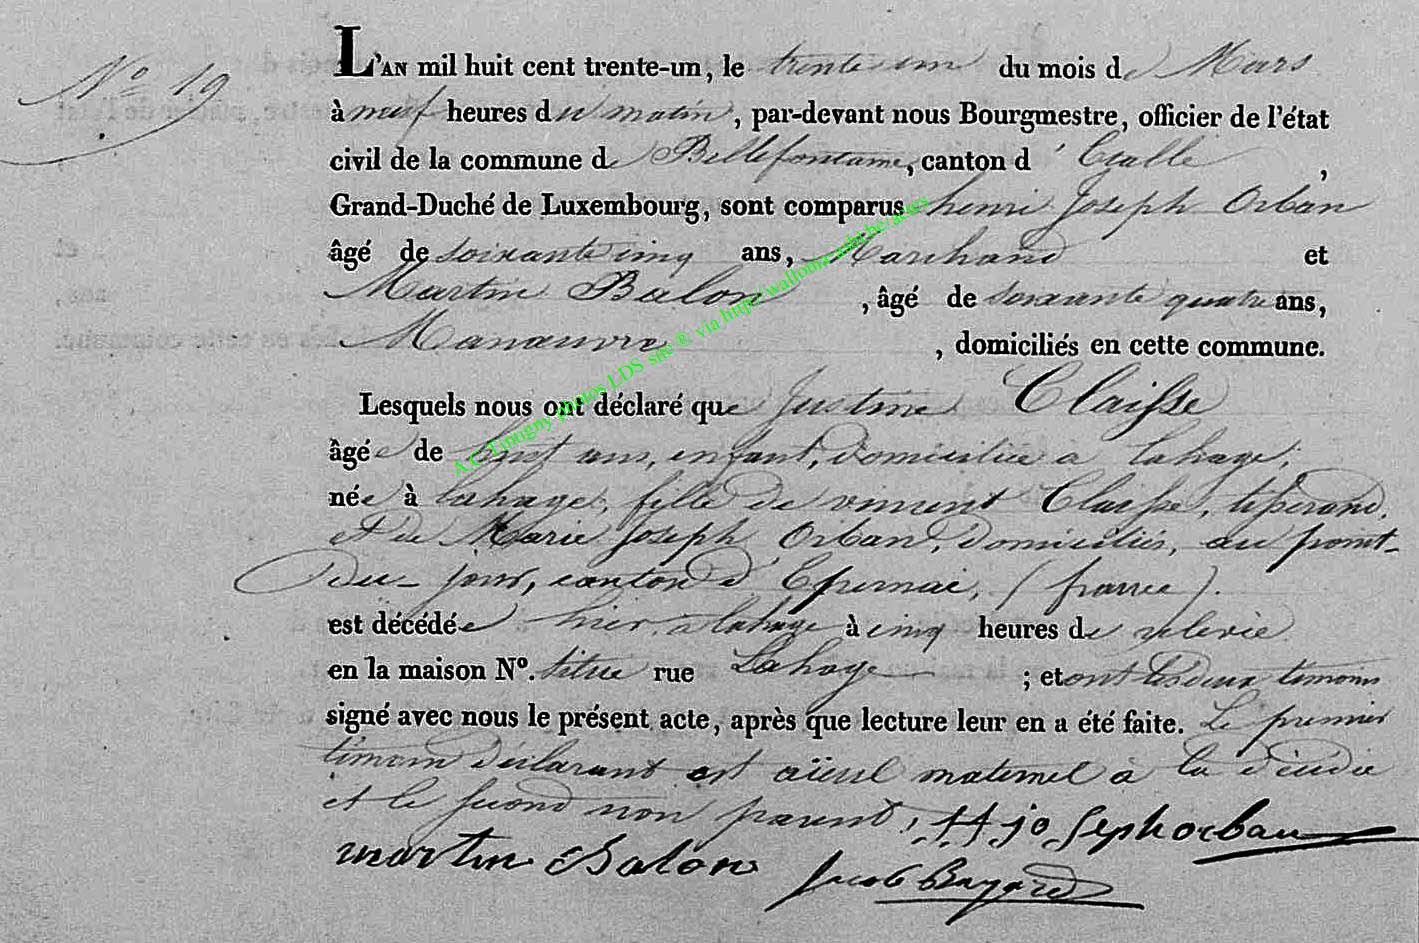 N° 19
L'AN mil huit cent trente-un, le trente un du mois de Mars
à neuf heures du matin, par-devant nous Bourgmestre, officier de l'état
civil de la commune de Bellefontaine, canton d' Etalle,
Grand-Duché de Luxembourg, sont comparus henri Joseph Orban
âgé de soixante cinq ans, Marchand et
Martin Balon, âgé de soixante quatre ans,
Manœuvre, domiciliés en cette commune.
Lesquels nous ont déclaré que Justine Claisse
âgée de ans, enfant, domiciliée à Lahage,
née à Lahage, fille de vincent Claisse, tisserand,
et de Marie Joseph Orban, domiciliés, au point-
du-jour, canton d' Epernai, (france).
est décédée hier, à lahage à cinq heures de relevée
en la maison N°. située rue Lahage ; et ont les deux témoins
signé avec nous le présent acte, après que lecture leur en a été faite. Le premier
témoin déclarant est aïeul maternel à la décédée
et le second non parent,
H joseph orban
martin Balon
Jacob Bayard
A.C. Tintigny photos LDS site © via http://wallonia.asbl.be/actes